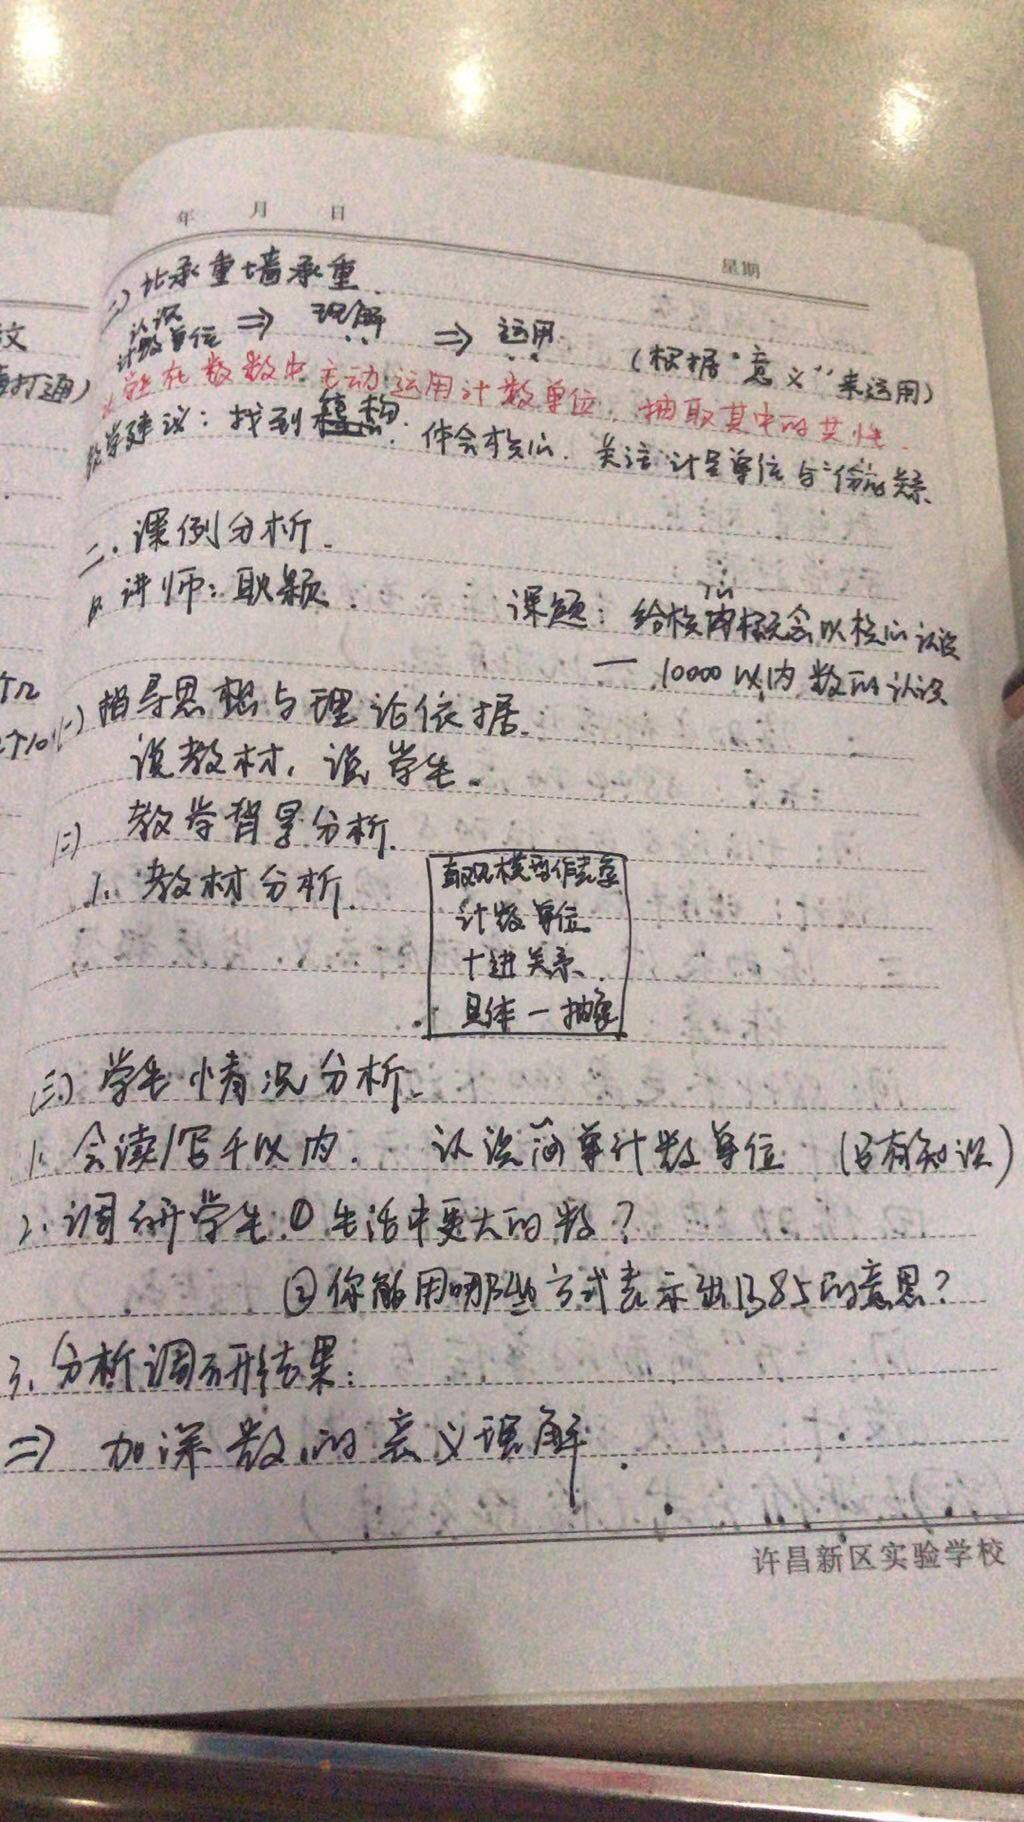 年 月 日
星期
二) 让承重墙承重.
认识计数单位 ⇒ 理解 ⇒ 运用 (根据"意义"来运用)
能在数数中主动运用计数单位, 抽取其中的共性
教学建议: 找到结构. 体会核心. 关注计量单位与之间的关系.
二. 课例分析.
讲师: 耿颖. 课题: 以核心认识
— 10000以内数的认识
(一) 指导思想与理论依据.
说教材, 说学生.
(二) 教学背景分析.
1. 教材分析.
直观模型作支撑
计数单位
十进关系
具体—抽象
(三) 学生情况分析.
1. 会读/写千以内. 认识简单计数单位 (已有知识)
2. 调研学生: ① 生活中更大的数?
② 你能用哪些方式表示出1385的意思?
3. 分析调研结果:
⇒ 加深数的意义理解.
许昌新区实验学校
文
打通)
个10